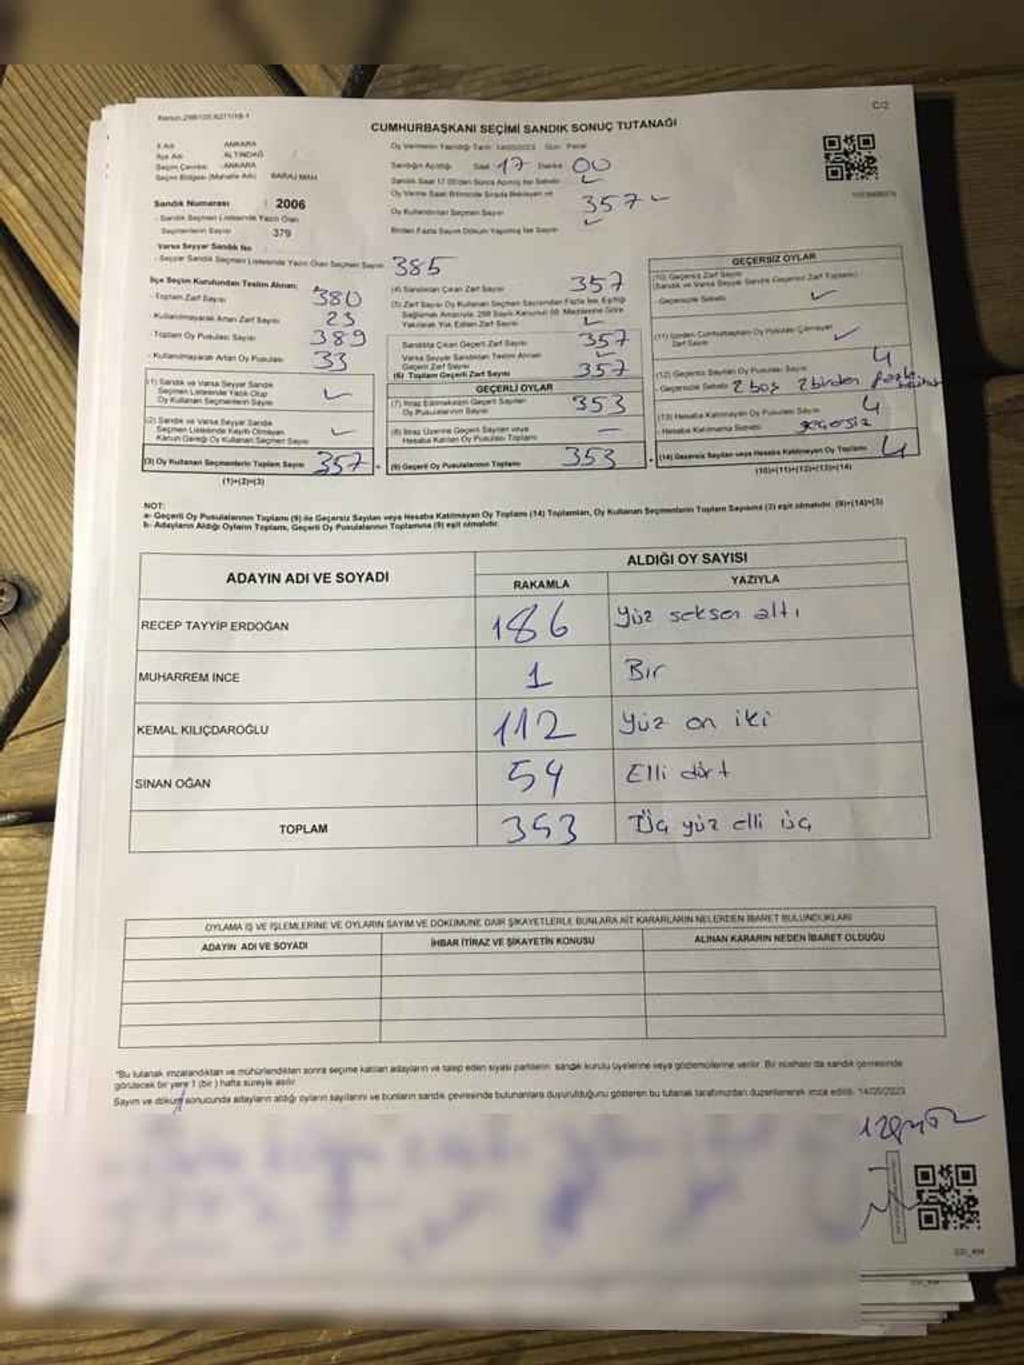 Kanun.298/105.6271/18-1
C/2
CUMHURBAŞKANI SEÇİMİ SANDIK SONUÇ TUTANAĞI
İl Adı ANKARA
İlçe Adı ALTINDAĞ
Seçim Çevresi ANKARA
Seçim Bölgesi (Mahalle Adı) BARAJ MAH
Oy Vermenin Yapıldığı Tarih 14/05/2023 Gün Pazar
Sandığın Açıldığı Saat 17 Dakika 00
Sandık Saat 17.00'den Sonra Açılmış İse Sebebi
Oy Verme Saati Bitiminde Sırada Bekleyen ve
Oy Kullandırılan Seçmen Sayısı 357
Birden Fazla Sayım Döküm Yapılmış İse Sayısı
Sandık Numarası 2006
- Sandık Seçmen Listesinde Yazılı Olan
Seçmenlerin Sayısı 379
Varsa Seyyar Sandık No
- Seyyar Sandık Seçmen Listesinde Yazılı Olan Seçmen Sayısı 385
İlçe Seçim Kurulundan Teslim Alınan:
- Toplam Zarf Sayısı 380
- Kullanılmayarak Artan Zarf Sayısı 23
- Toplam Oy Pusulası Sayısı 389
- Kullanılmayarak Artan Oy Pusulası 33
(1) Sandık ve Varsa Seyyar Sandık
Seçmen Listesinde Yazılı Olup
Oy Kullanan Seçmenlerin Sayısı
(2) Sandık ve Varsa Seyyar Sandık
Seçmen Listesinde Kayıtlı Olmayan
Kanun Gereği Oy Kullanan Seçmen Sayısı
(3) Oy Kullanan Seçmenlerin Toplam Sayısı 357
(1)+(2)=(3)
(4) Sandıktan Çıkan Zarf Sayısı 357
(5) Zarf Sayısı Oy Kullanan Seçmen Sayısından Fazla İse, Eşitliği
Sağlamak Amacıyla, 298 Sayılı Kanunun 98. Maddesine Göre
Yakılarak Yok Edilen Zarf Sayısı
Sandıkta Çıkan Geçerli Zarf Sayısı 357
Varsa Seyyar Sandıktan Teslim Alınan
Geçerli Zarf Sayısı
(6) Toplam Geçerli Zarf Sayısı 357
GEÇERLİ OYLAR
(7) İtiraz Edilmeksizin Geçerli Sayılan
Oy Pusulalarının Sayısı 353
(8) İtiraz Üzerine Geçerli Sayılan veya
Hesaba Katılan Oy Pusulası Toplamı —
(9) Geçerli Oy Pusulalarının Toplamı 353
GEÇERSİZ OYLAR
(10) Geçersiz Zarf Sayısı
(Sandık ve Varsa Seyyar Sandık Geçersiz Zarf Toplamı)
- Geçersizlik Sebebi
(11) İçinden Cumhurbaşkanı Oy Pusulası Çıkmayan
Zarf Sayısı
(12) Geçersiz Sayılan Oy Pusulası Sayısı 4
- Geçersizlik Sebebi 2 boş 2 birden fazla
(13) Hesaba Katılmayan Oy Pusulası Sayısı 4
- Hesaba Katılmama Sebebi geçersiz
(14) Geçersiz Sayılan veya Hesaba Katılmayan Oy Toplamı 4
(10)+(11)+(12)+(13)=(14)
NOT:
a- Geçerli Oy Pusulalarının Toplamı (9) ile Geçersiz Sayılan veya Hesaba Katılmayan Oy Toplamı (14) Toplamları, Oy Kullanan Seçmenlerin Toplam Sayısına (3) eşit olmalıdır. (9)+(14)=(3)
b- Adayların Aldığı Oyların Toplamı, Geçerli Oy Pusulalarının Toplamına (9) eşit olmalıdır.
ADAYIN ADI VE SOYADI
ALDIĞI OY SAYISI
RAKAMLA YAZIYLA
RECEP TAYYİP ERDOĞAN 186 Yüz seksen altı
MUHARREM İNCE 1 Bir
KEMAL KILIÇDAROĞLU 112 Yüz on iki
SİNAN OĞAN 54 Elli dört
TOPLAM 353 Üç yüz elli üç
OYLAMA İŞ VE İŞLEMLERİNE VE OYLARIN SAYIM VE DÖKÜMÜNE DAİR ŞİKAYETLERLE BUNLARA AİT KARARLARIN NELERDEN İBARET BULUNDUKLARI
ADAYIN ADI VE SOYADI İHBAR İTİRAZ VE ŞİKAYETİN KONUSU ALINAN KARARIN NEDEN İBARET OLDUĞU
*Bu tutanak imzalandıktan ve mühürlendikten sonra seçime katılan adayların ve talep eden siyasi partilerin sandık kurulu üyelerine veya gözlemcilerine verilir. Bir nüshası da sandık çevresinde
görülecek bir yere 1 (bir) hafta süreyle asılır.
Sayım ve döküm sonucunda adayların aldığı oyların sayılarını ve bunların sandık çevresinde bulunanlara duyurulduğunu gösteren bu tutanak tarafımızdan düzenlenerek imza edildi. 14/05/2023